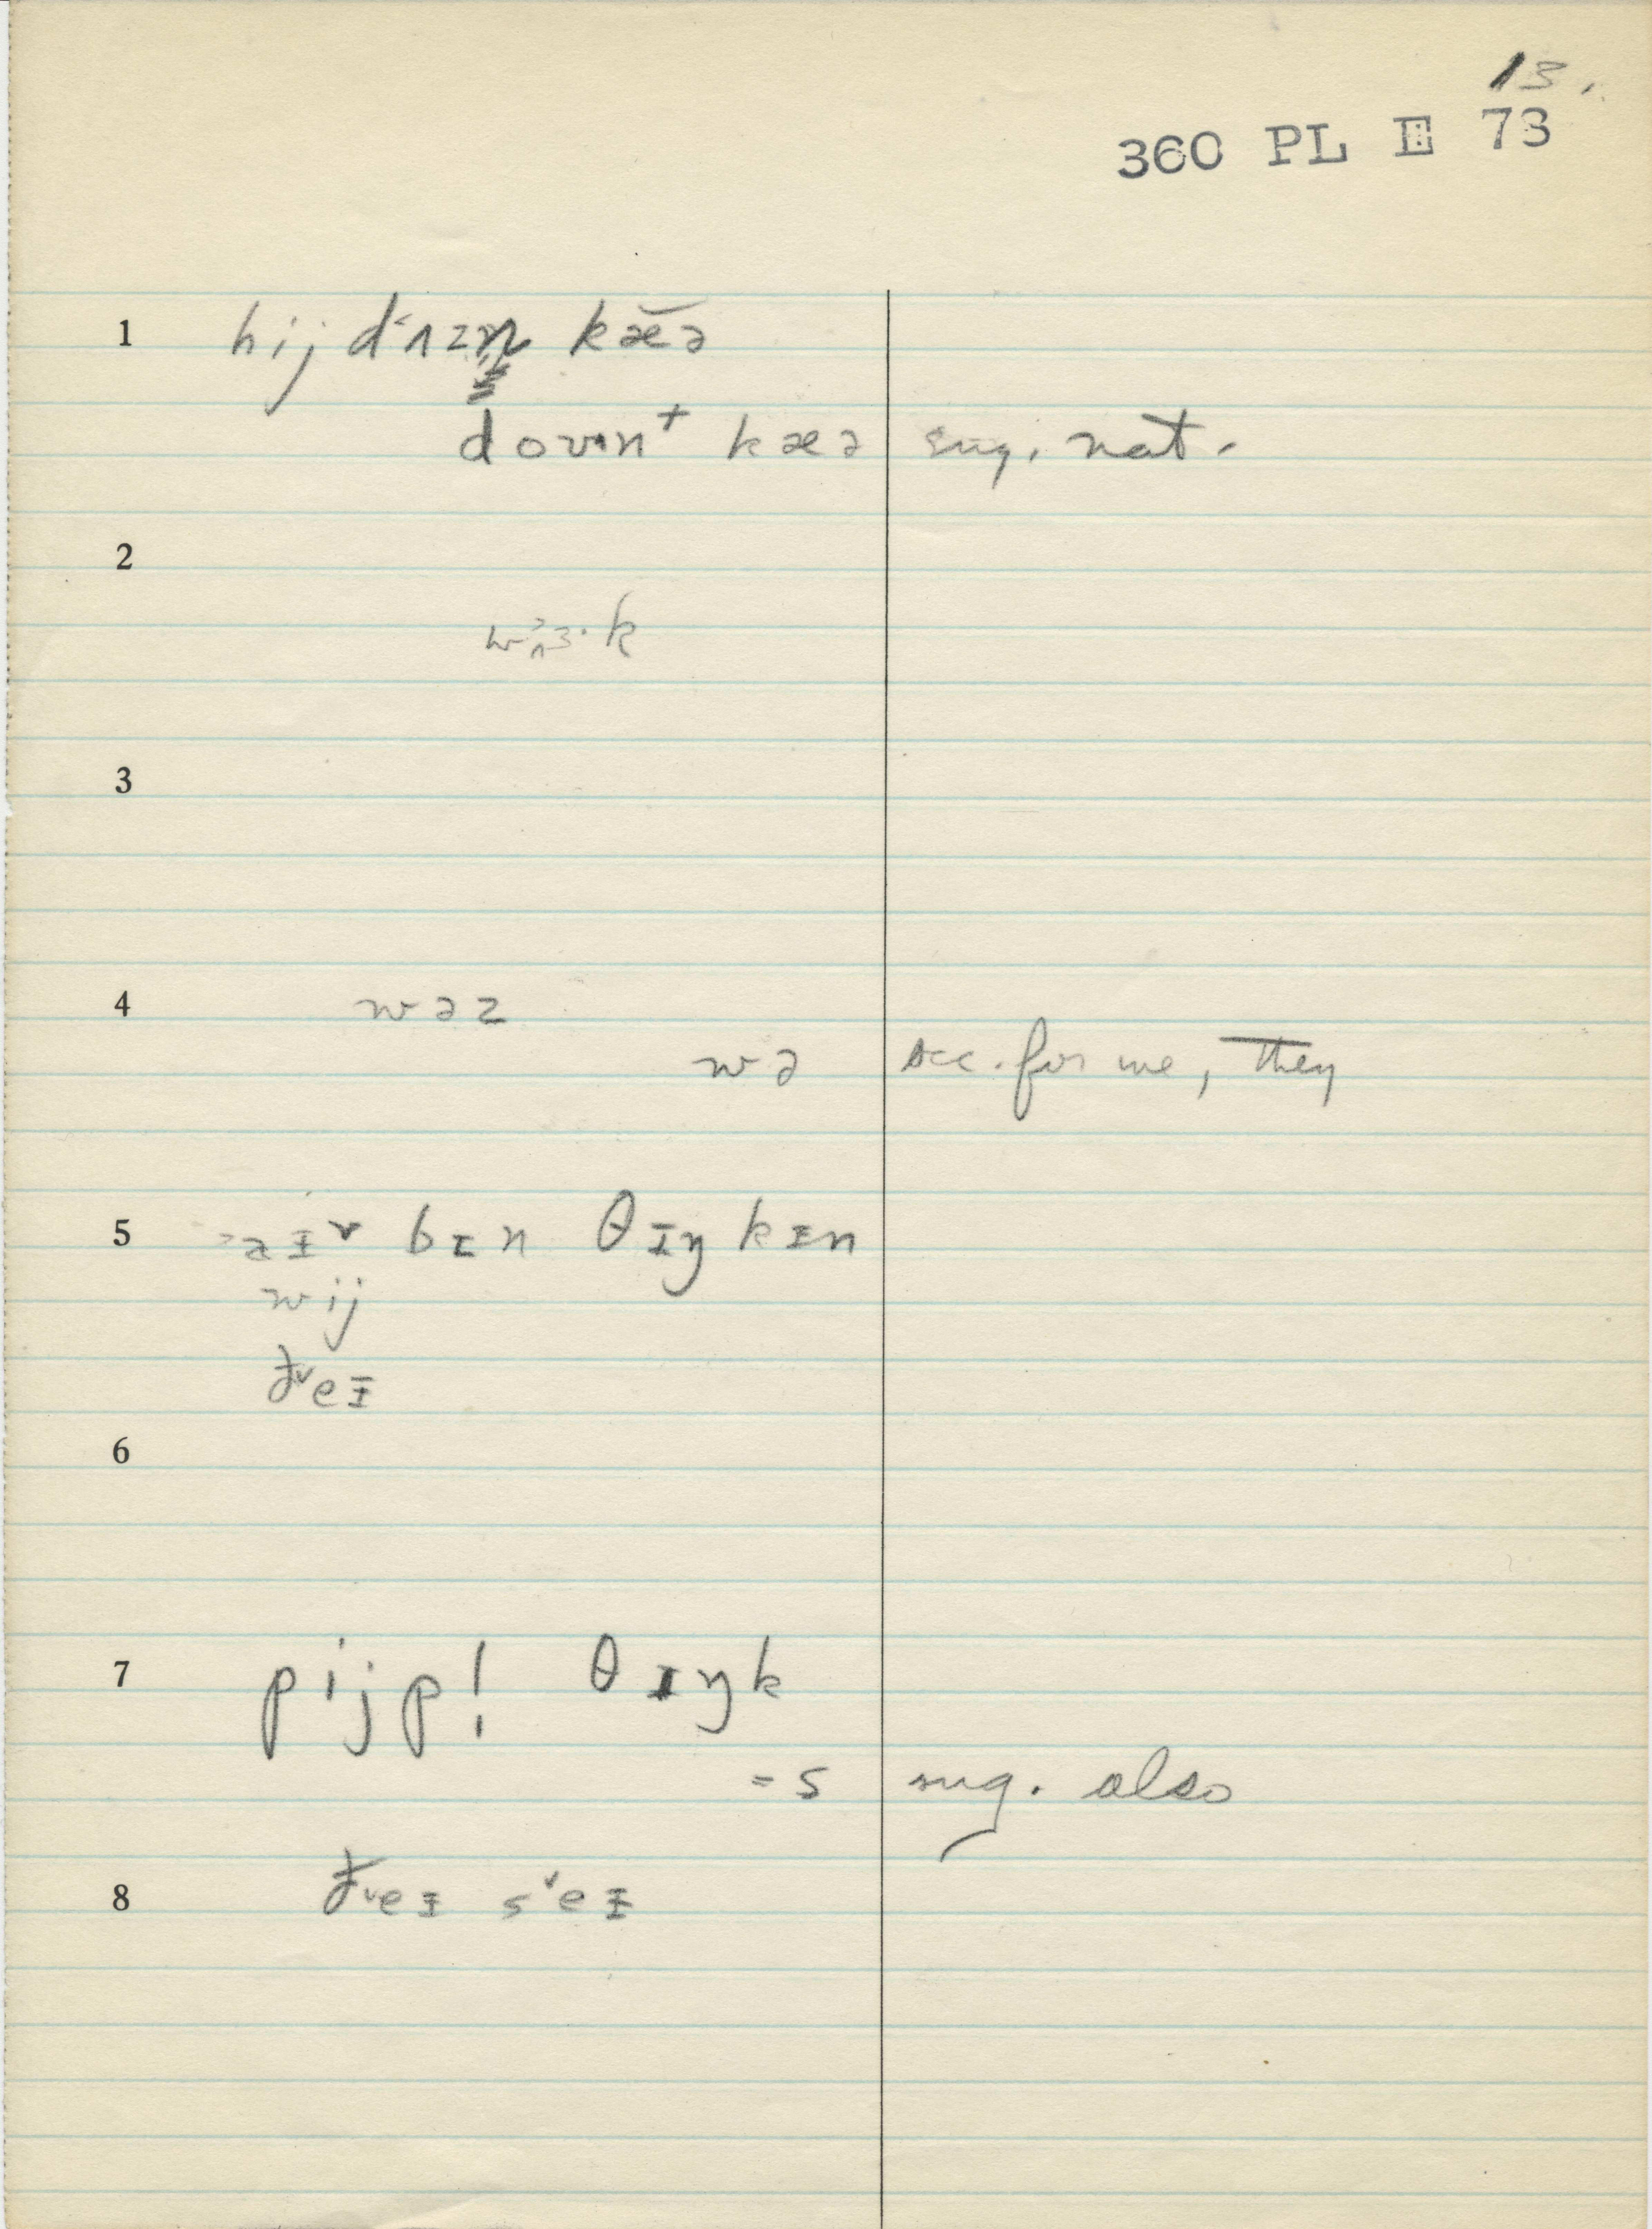 13.
360 PL E 73
1 hij dʌzn kæə
dovn⁺ kæə sug. nat.
2
k
3
4 wəz
wə occ. for we, they
5 aɨ˅ bɪn θɪŋkɪn
wij
ð˅eɨ
6
7 pijp! θɪŋk
=s sug. also
8 ð˅eɨ s˅eɨ